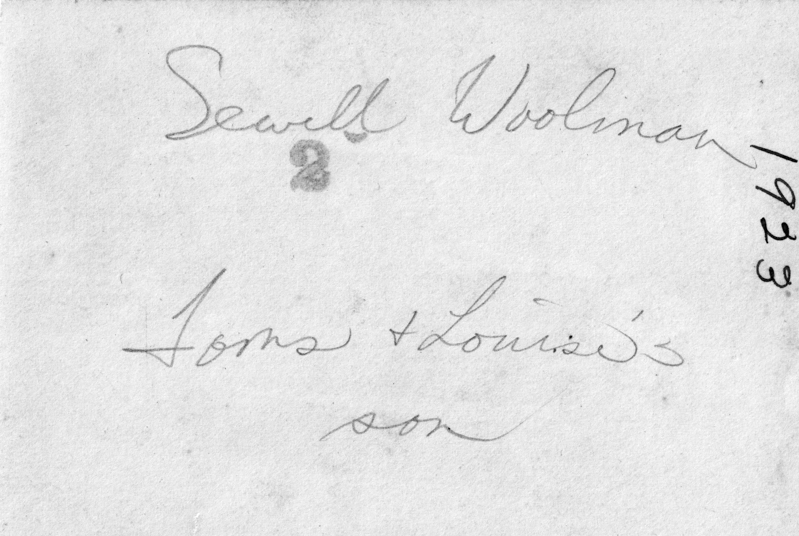 Sewell Woolman
2
1923
Toms + Louise's
son